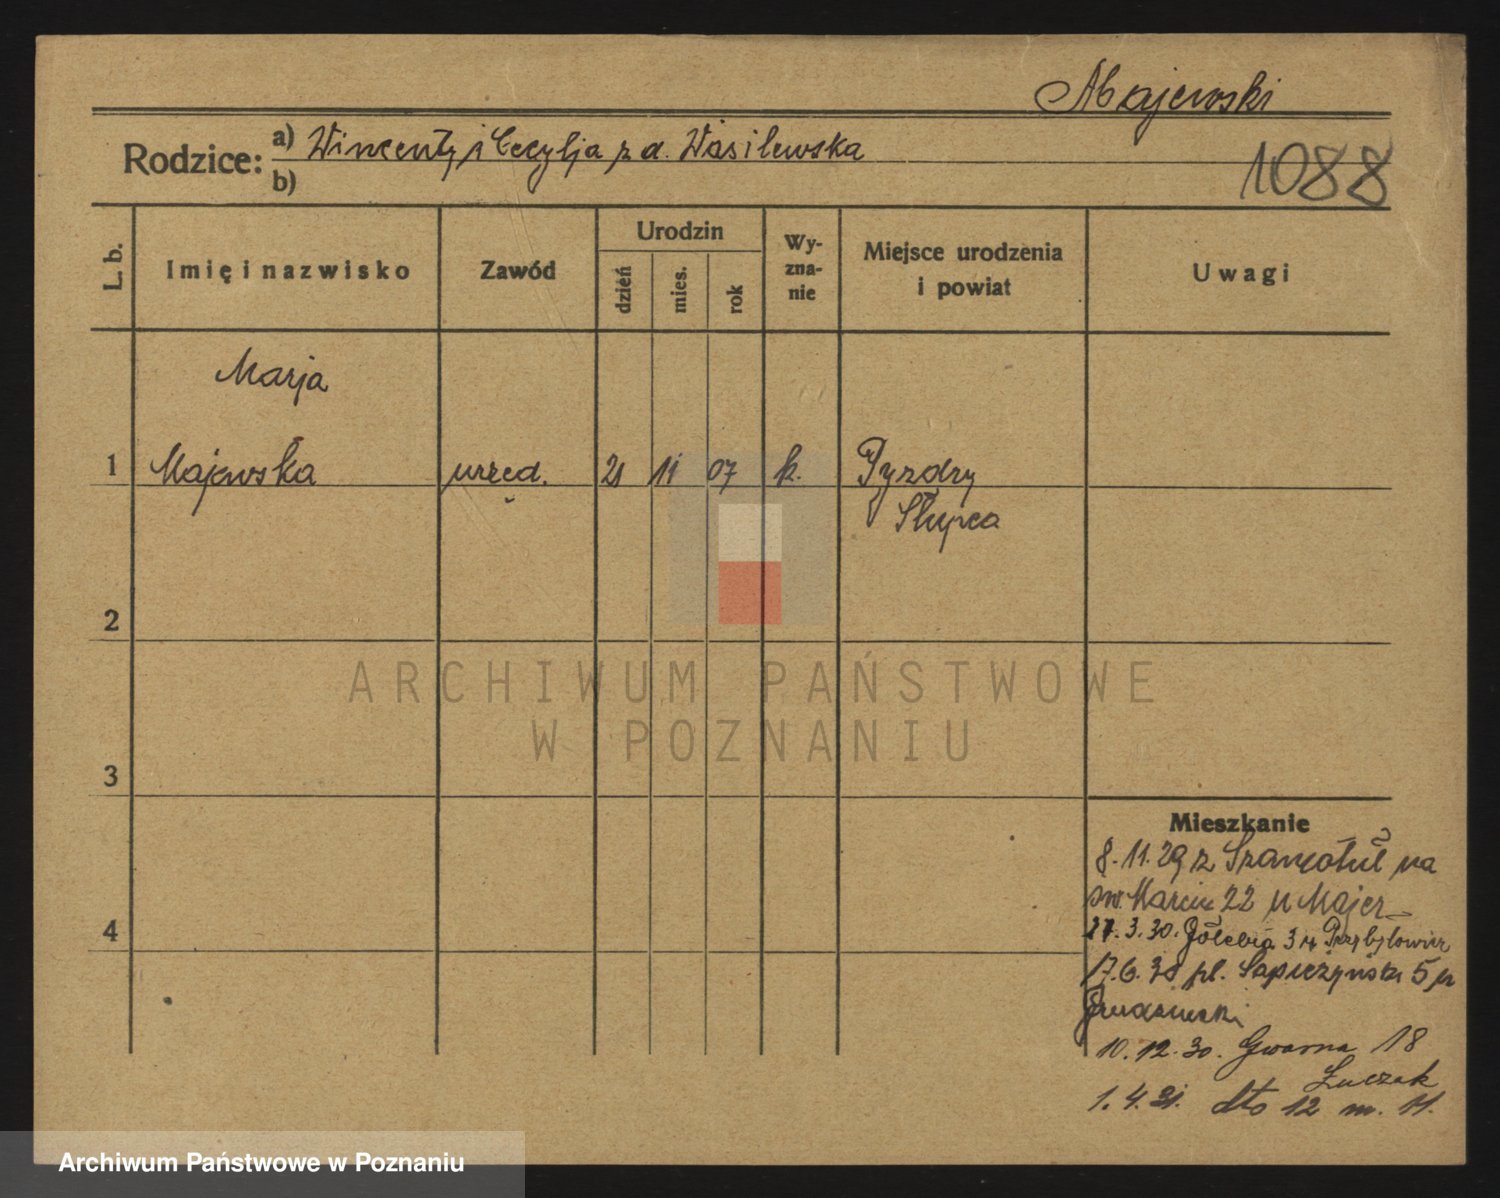 Majewski
Rodzice: a) Wincenty i Cecylja z d. Wasilewska
b)
1088
L. b.
Imię i nazwisko
Zawód
Urodzin
dzień
mies.
rok
Wy-
zna-
nie
Miejsce urodzenia
i powiat
Uwagi
Marja
1 Majewska urzęd. 21 11 07 k. Pyzdry
Słupca
2
ARCHIWUM PAŃSTWOWE
W POZNANIU
3
Mieszkanie
8.11.29 z Szamotuł na
św. Marcin 22 u Majer
27.3.30. Gołębia 3 u Przybyłowicz
17.6.30 pl. Sapieżyński 5 u
10.12.30. Gwarna 18
Łuczak
1.4.31. dto 12 m. 11.
4
Archiwum Państwowe w Poznaniu